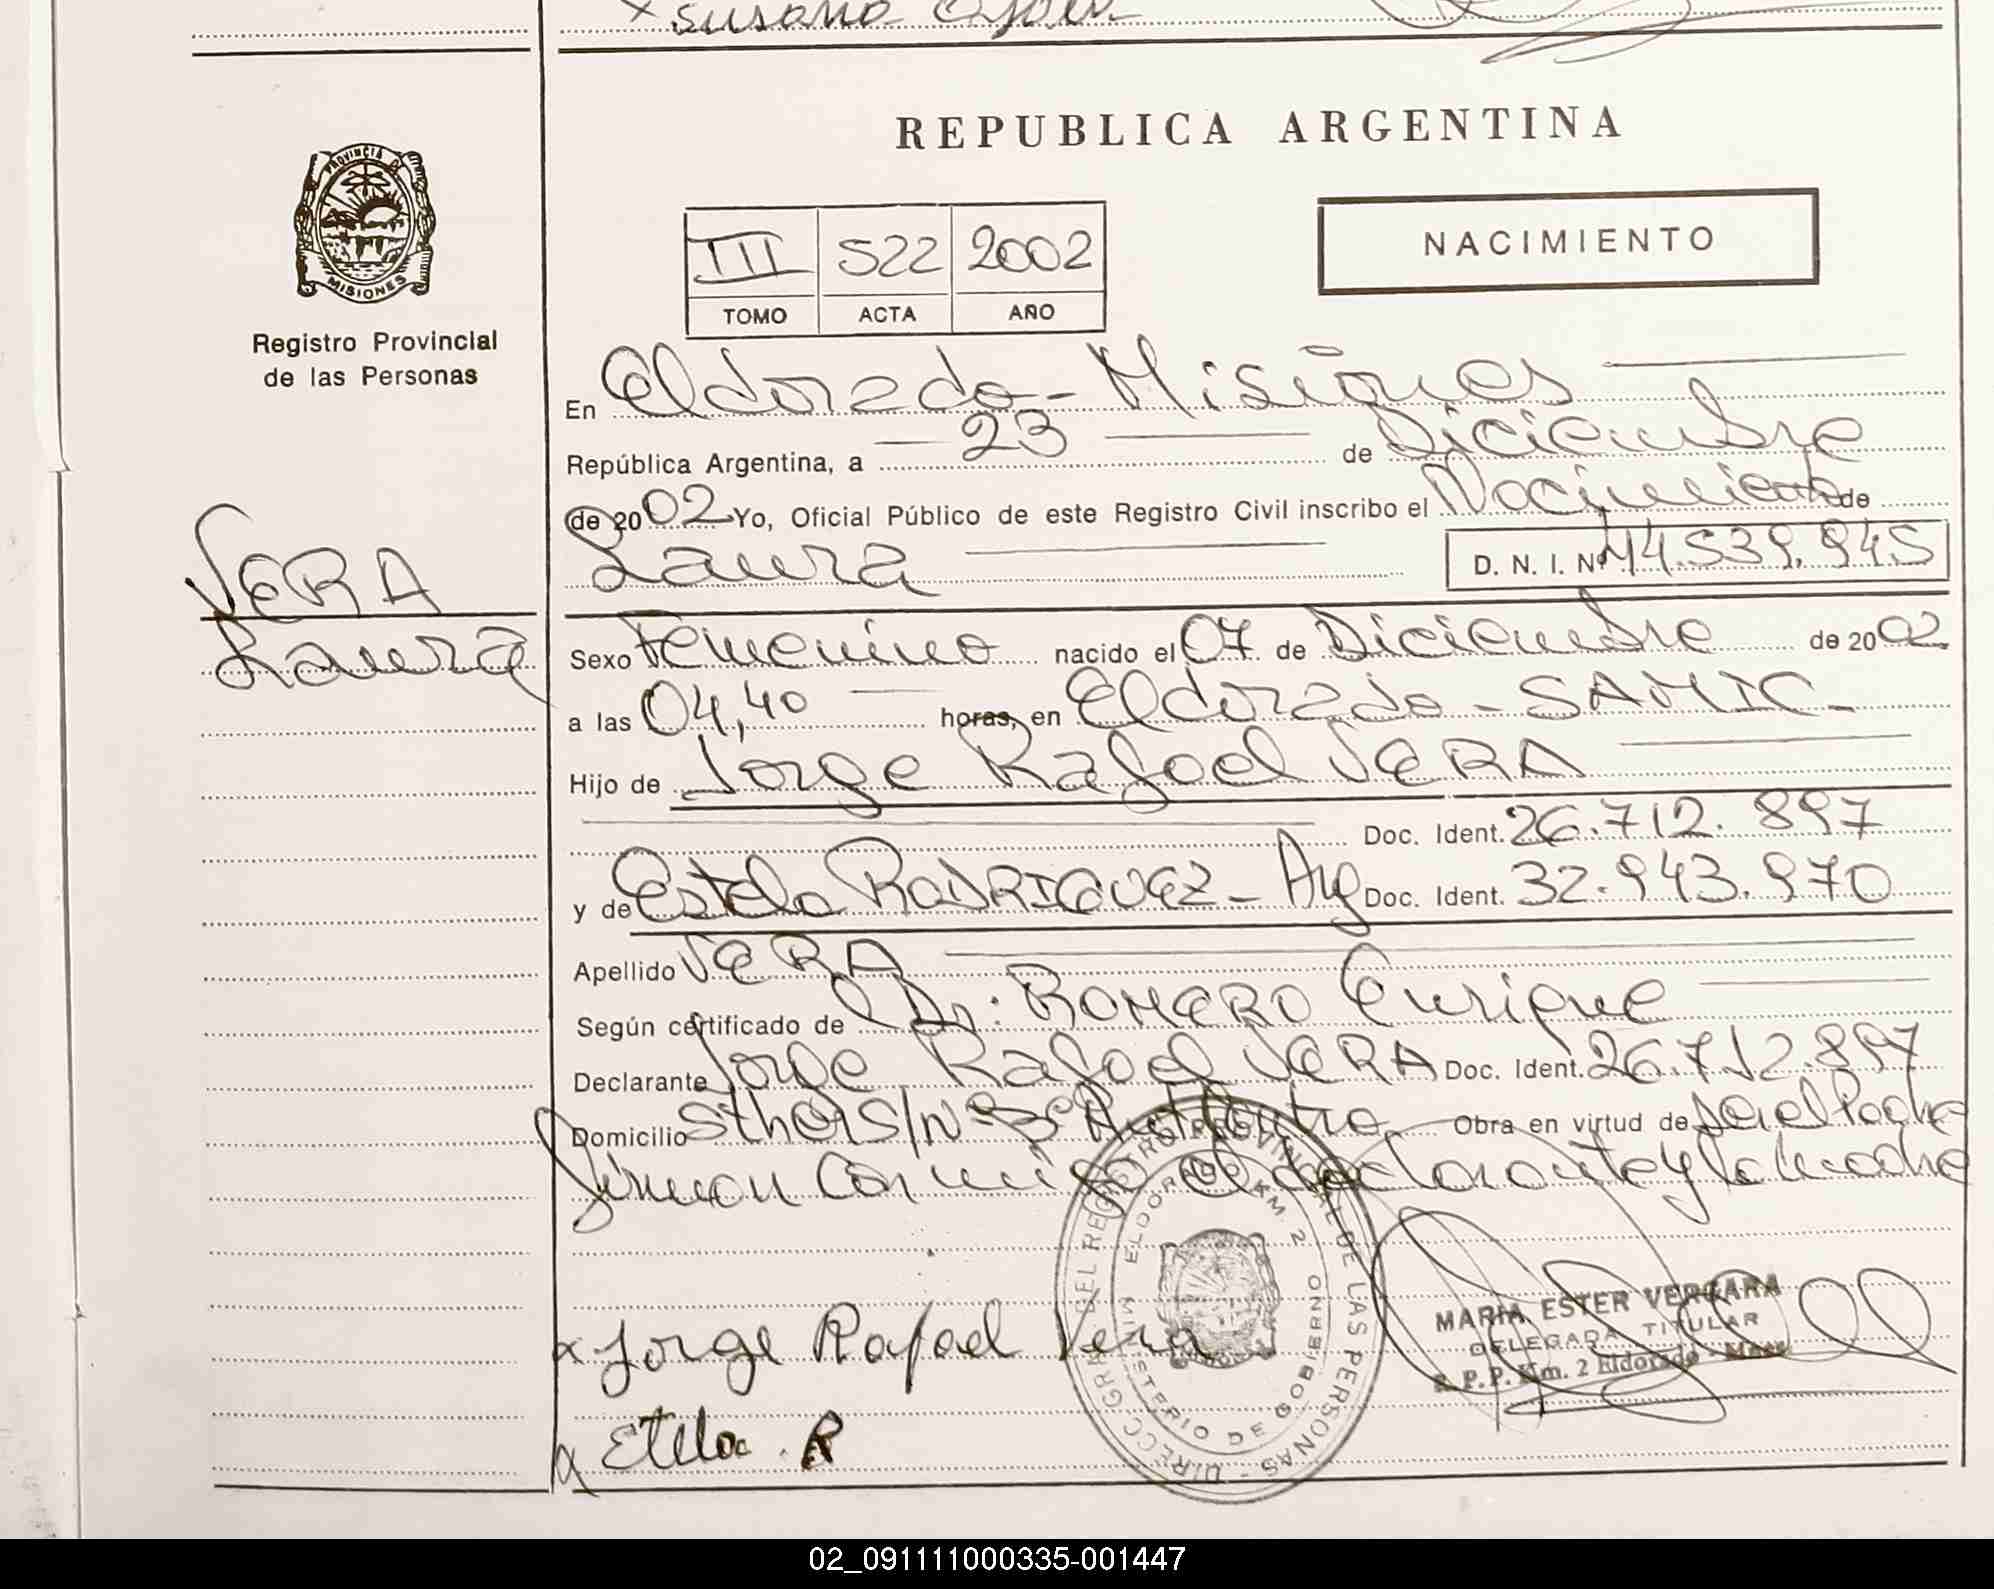 x Susana
REPUBLICA ARGENTINA
PROVINCIA DE
MISIONES
Registro Provincial
de las Personas
III 522 2002
TOMO ACTA AÑO
NACIMIENTO
En Eldorado - Misiones
República Argentina, a 23 de Diciembre
de 2002 Yo, Oficial Público de este Registro Civil inscribo el Nacimiento de
Laura D. N. I. Nº 44.539.945
VERA
Laura
Sexo Femenino nacido el 07 de Diciembre de 2002
a las 04,40 horas, en Eldorado - SAMIC -
Hijo de Jorge Rafael VERA
Doc. Ident. 26.712.897
y de Estela RODRIGUEZ - Arg Doc. Ident. 32.943.970
Apellido VERA
Según certificado de Dr: ROMERO Enrique
Declarante Jorge Rafael VERA Doc. Ident. 26.712.897
Domicilio S/Nº Obra en virtud de ser el Padre
Firman conmigo el declarante y la madre
DIRECC. GRAL. DEL REGISTRO PROVINCIAL DE LAS PERSONAS -
ELDORADO KM. 2
MINISTERIO DE GOBIERNO
x Jorge Rafael Vera
MARIA ESTER VERGARA
DELEGADA TITULAR
R. P. P. Km. 2 Eldorado - Mnes.
x Etela . R
02_091111000335-001447